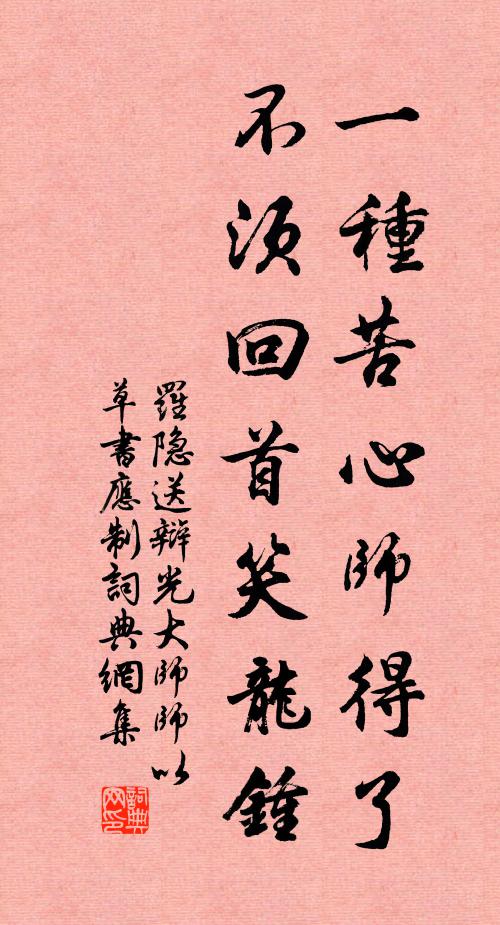 一種苦心師得了
不須回首笑龍鍾
羅隐送辯光大師師以
草書應制詞典網集
詞典
网印